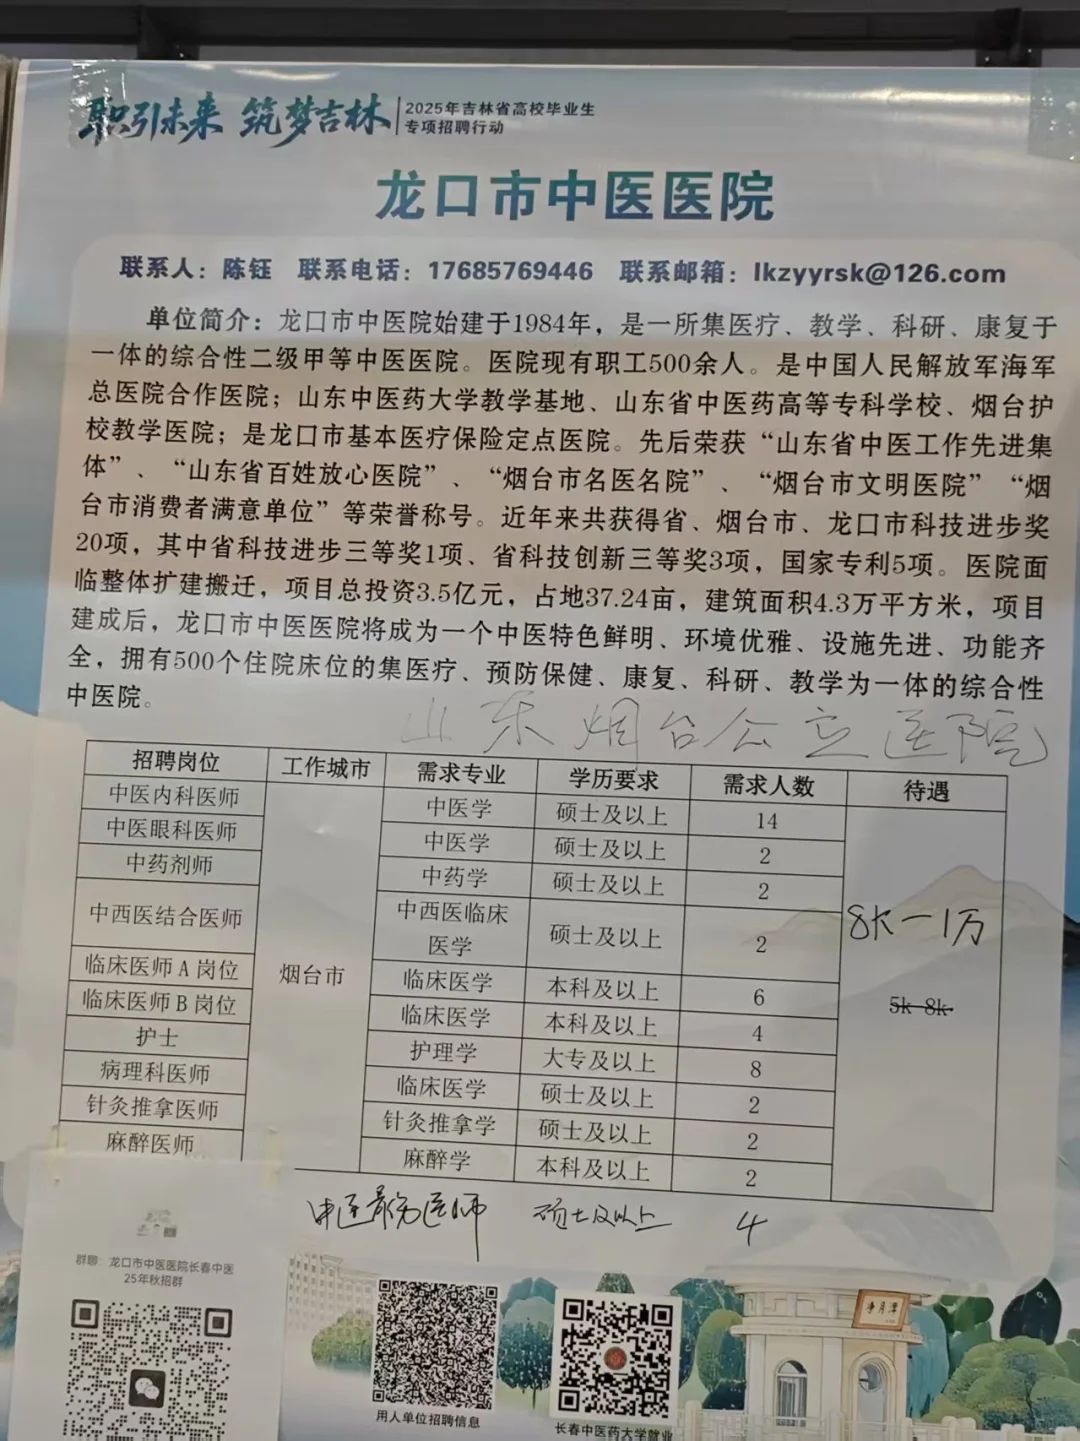 职引未来 筑梦吉林
2025年吉林省高校毕业生
专项招聘行动
龙口市中医医院
联系人：陈钰 联系电话：17685769446 联系邮箱：lkzyyrsk@126.com
单位简介：龙口市中医院始建于1984年，是一所集医疗、教学、科研、康复于
一体的综合性二级甲等中医医院。医院现有职工500余人。是中国人民解放军海军
总医院合作医院；山东中医药大学教学基地、山东省中医药高等专科学校、烟台护
校教学医院；是龙口市基本医疗保险定点医院。先后荣获“山东省中医工作先进集
体”、“山东省百姓放心医院”、“烟台市名医名院”、“烟台市文明医院”“烟
台市消费者满意单位”等荣誉称号。近年来共获得省、烟台市、龙口市科技进步奖
20项，其中省科技进步三等奖1项、省科技创新三等奖3项，国家专利5项。医院面
临整体扩建搬迁，项目总投资3.5亿元，占地37.24亩，建筑面积4.3万平方米，项目
建成后，龙口市中医医院将成为一个中医特色鲜明、环境优雅、设施先进、功能齐
全，拥有500个住院床位的集医疗、预防保健、康复、科研、教学为一体的综合性
中医院。
山东烟台公立医院
招聘岗位 工作城市 需求专业 学历要求 需求人数 待遇
中医内科医师 中医学 硕士及以上 14
中医眼科医师 中医学 硕士及以上 2
中药剂师 中药学 硕士及以上 2
中西医结合医师 中西医临床医学 硕士及以上 2
8k-1万
临床医师A岗位 临床医学 本科及以上 6
烟台市
5k-8k
临床医师B岗位 临床医学 本科及以上 4
护士 护理学 大专及以上 8
病理科医师 临床医学 硕士及以上 2
针灸推拿医师 针灸推拿学 硕士及以上 2
麻醉医师 麻醉学 本科及以上 2
中医骨伤医师 硕士及以上 4
群聊：龙口市中医医院长春中医
25年秋招群
净月潭
用人单位招聘信息
长春中医药大学就业